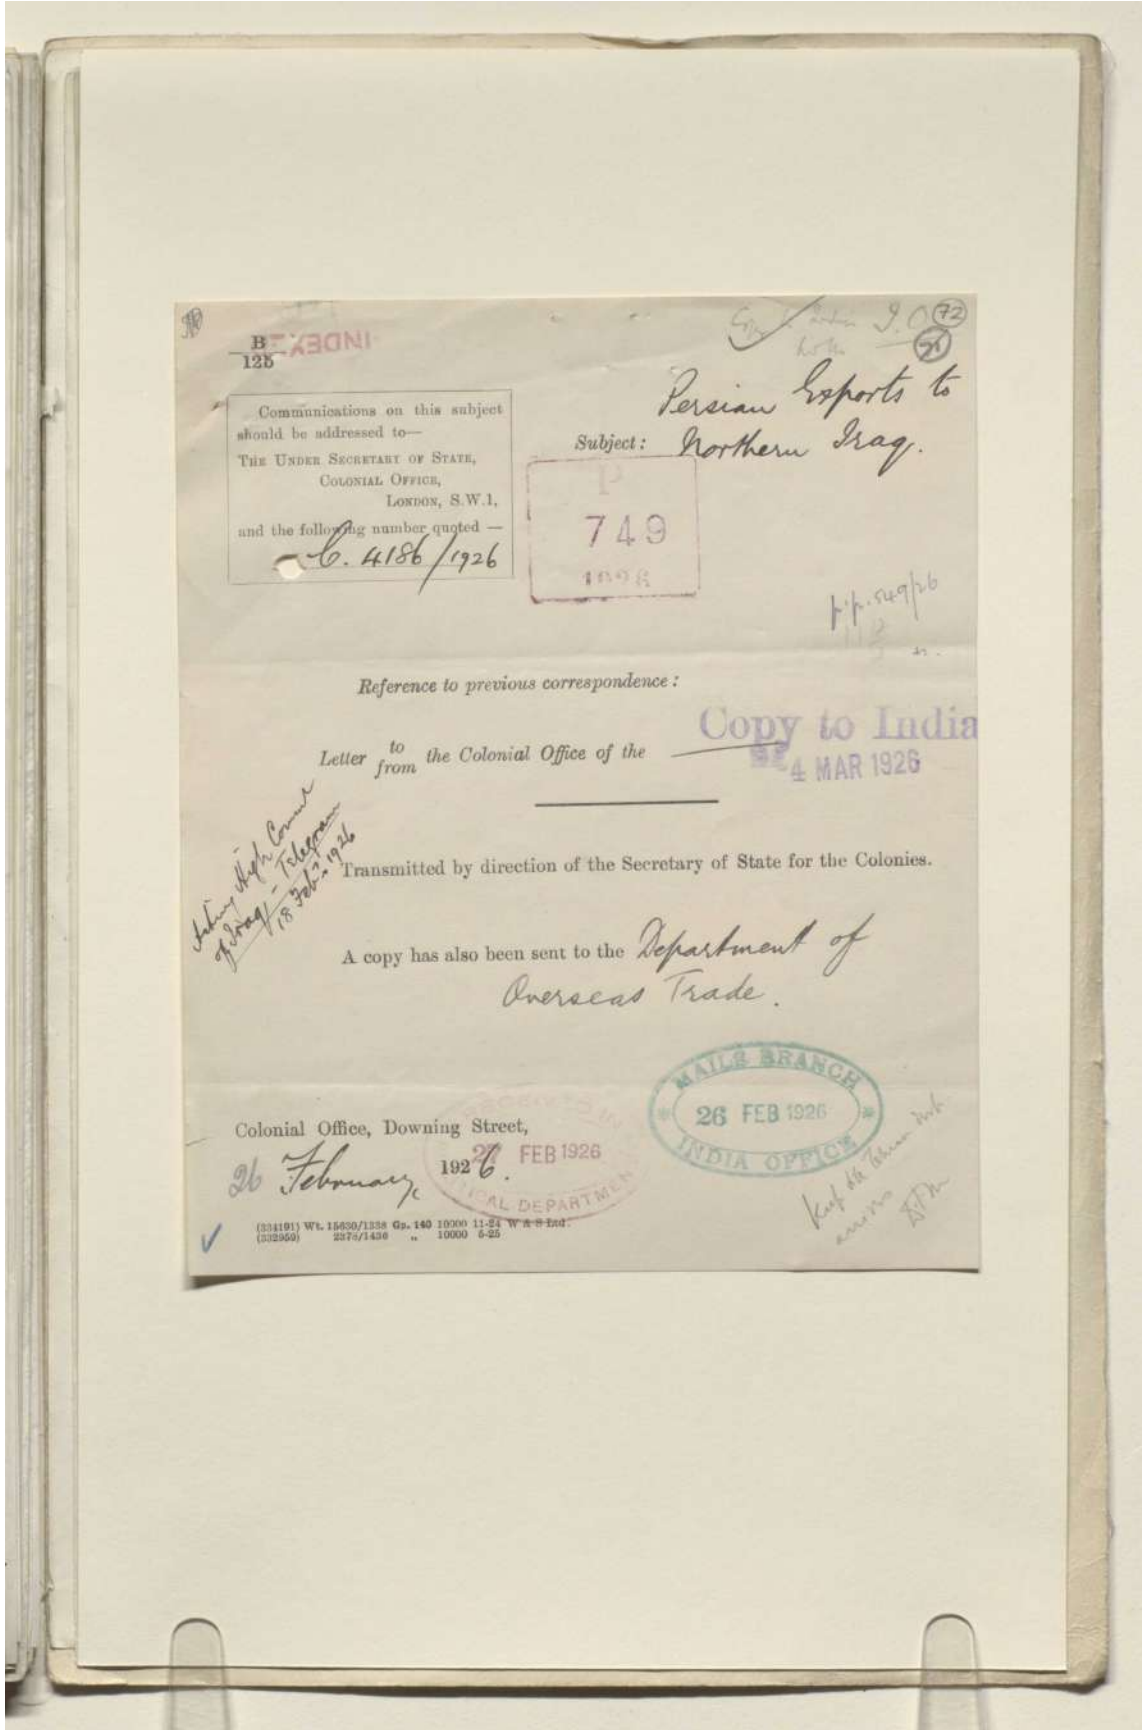 72
I.O.
INDEXED
B
125
Persian Exports to
Subject: Northern Iraq.
Communications on this subject
should be addressed to—
THE UNDER SECRETARY OF STATE,
COLONIAL OFFICE,
LONDON, S.W.1,
and the following number quoted —
C. 4186/1926
P
749
1926
p.p. 549/26
Reference to previous correspondence:
Letter to from the Colonial Office of the
Copy to India
4 MAR 1926
Acting High Commr
of Iraq - Telegram
18 Feby. 1926
Transmitted by direction of the Secretary of State for the Colonies.
A copy has also been sent to the Department of
Overseas Trade.
MAILS BRANCH
26 FEB 1926
INDIA OFFICE
Colonial Office, Downing Street,
26 February, 1926.
RECEIVED IN
27 FEB 1926
POLITICAL DEPARTMENT
(334191) Wt. 15630/1338 Gp. 140 10000 11-24 W & S Ltd.
(332959) 2378/1436 „ 10000 5-25